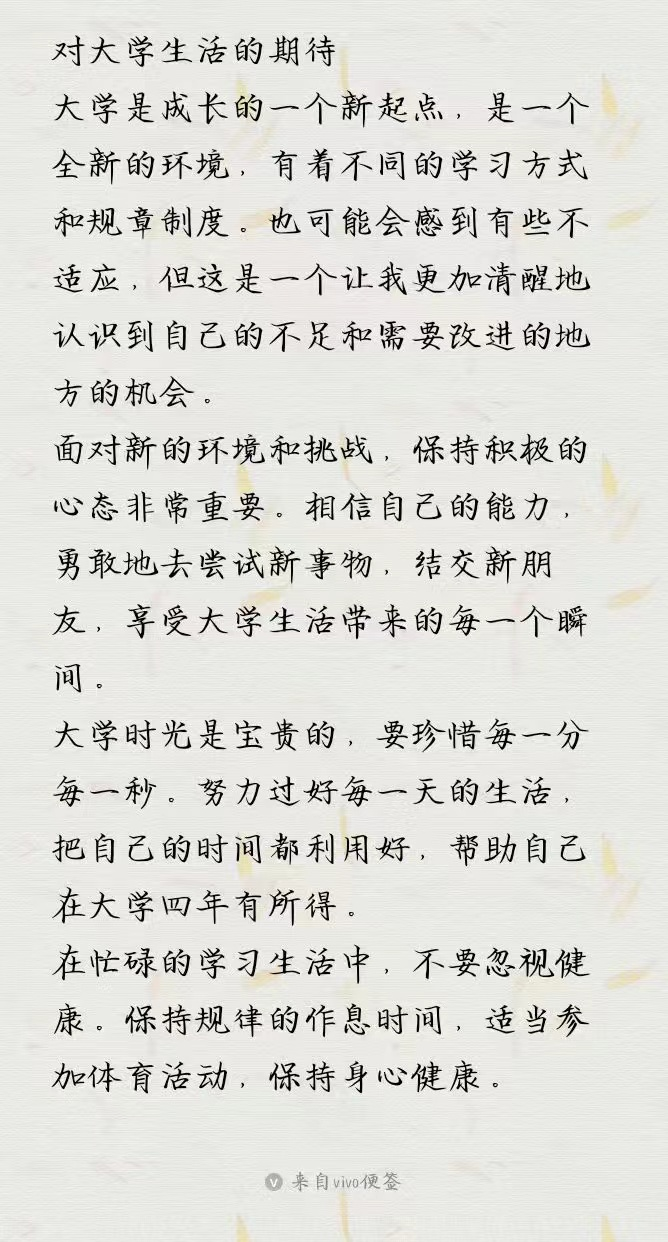 对大学生活的期待
大学是成长的一个新起点，是一个
全新的环境，有着不同的学习方式
和规章制度。也可能会感到有些不
适应，但这是一个让我更加清醒地
认识到自己的不足和需要改进的地
方的机会。
面对新的环境和挑战，保持积极的
心态非常重要。相信自己的能力，
勇敢地去尝试新事物，结交新朋
友，享受大学生活带来的每一个瞬
间。
大学时光是宝贵的，要珍惜每一分
每一秒。努力过好每一天的生活，
把自己的时间都利用好，帮助自己
在大学四年有所得。
在忙碌的学习生活中，不要忽视健
康。保持规律的作息时间，适当参
加体育活动，保持身心健康。
来自vivo便签